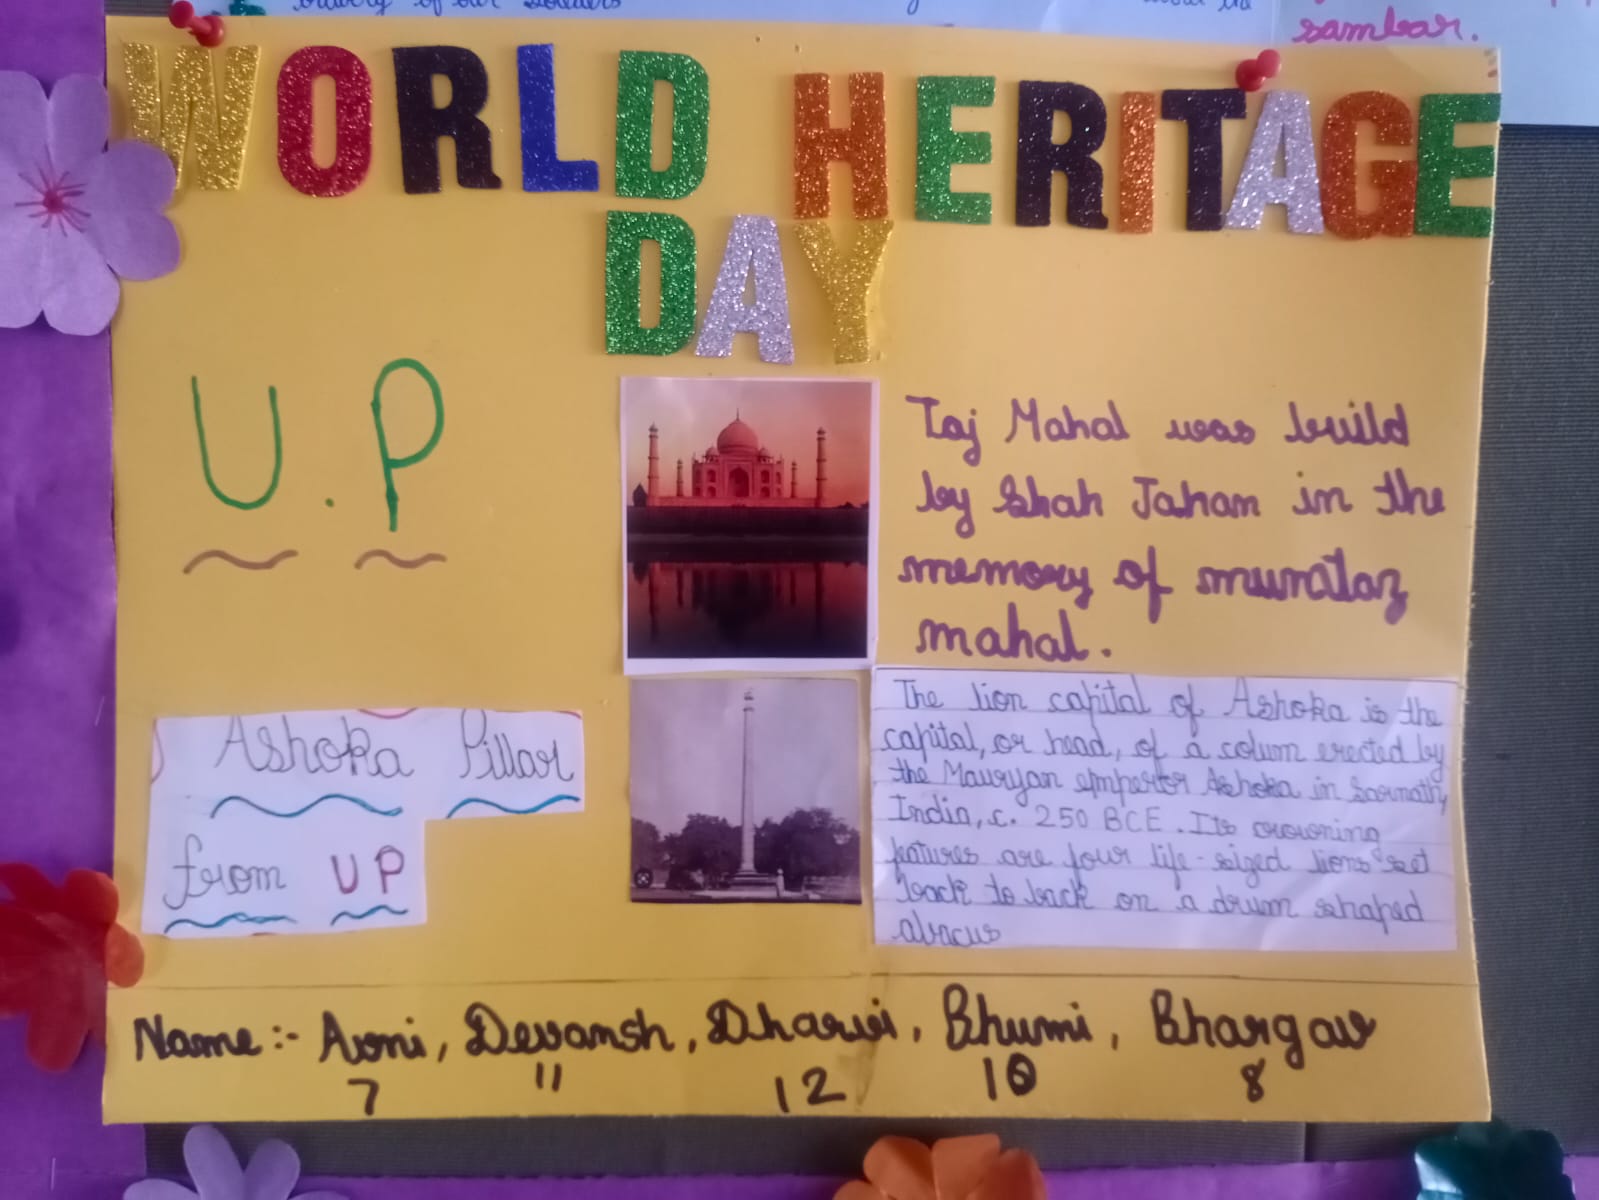 bravery of our soldiers
sambar.
WORLD HERITAGE
DAY
U.P
Taj Mahal was build
by Shah Jahan in the
memory of mumtaz
mahal.
Ashoka Pillar
from UP
The lion capital of Ashoka is the
capital, or head, of a colum erected by
the Mauryan emperor Ashoka in Sarnath,
India, c. 250 BCE. Its crowning
features are four life-sized lions set
back to back on a drum shaped
abacus
Name:- Avni, Devansh, Dharvi, Bhumi, Bhargav
7 11 12 10 8